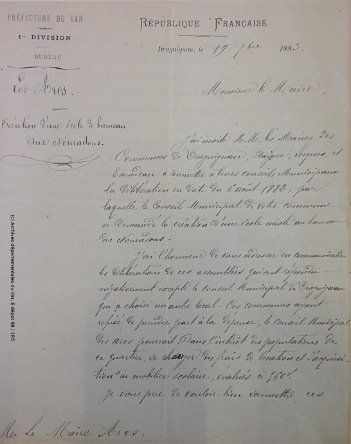 PRÉFECTURE DU VAR
RÉPUBLIQUE FRANÇAISE
1re DIVISION
Draguignan, le 19 9bre 1883
BUREAU
Les Arcs.
Monsieur le Maire,
Création d'une école de hameau
aux Nomadous.
J'ai invité M.M. les Maires des
Communes de Draguignan, Lorgues et
Taradeau à soumettre à leurs conseils Municipaux
la délibération en date du 6 août 1882, par
laquelle le Conseil Municipal de votre commune
a demandé la création d'une école mixte au hameau
des Nomadous.
J'ai l'honneur de vous adresser en communication
les délibérations de ces assemblées qui ont répondu
négativement excepté le conseil Municipal de Draguignan
qui a choisi un autre local. Ces communes ayant
refusé de prendre part à la dépense, le Conseil Municipal
des Arcs pourrait, dans l'intérêt des populations de
ce quartier, se charger des frais de location et d'acquisi-
tion du mobilier scolaire, évalués à
Je vous prie de vouloir bien soumettre ces
M. Le Maire Arcs.
(c) Archives départementales du Var, E dépôt